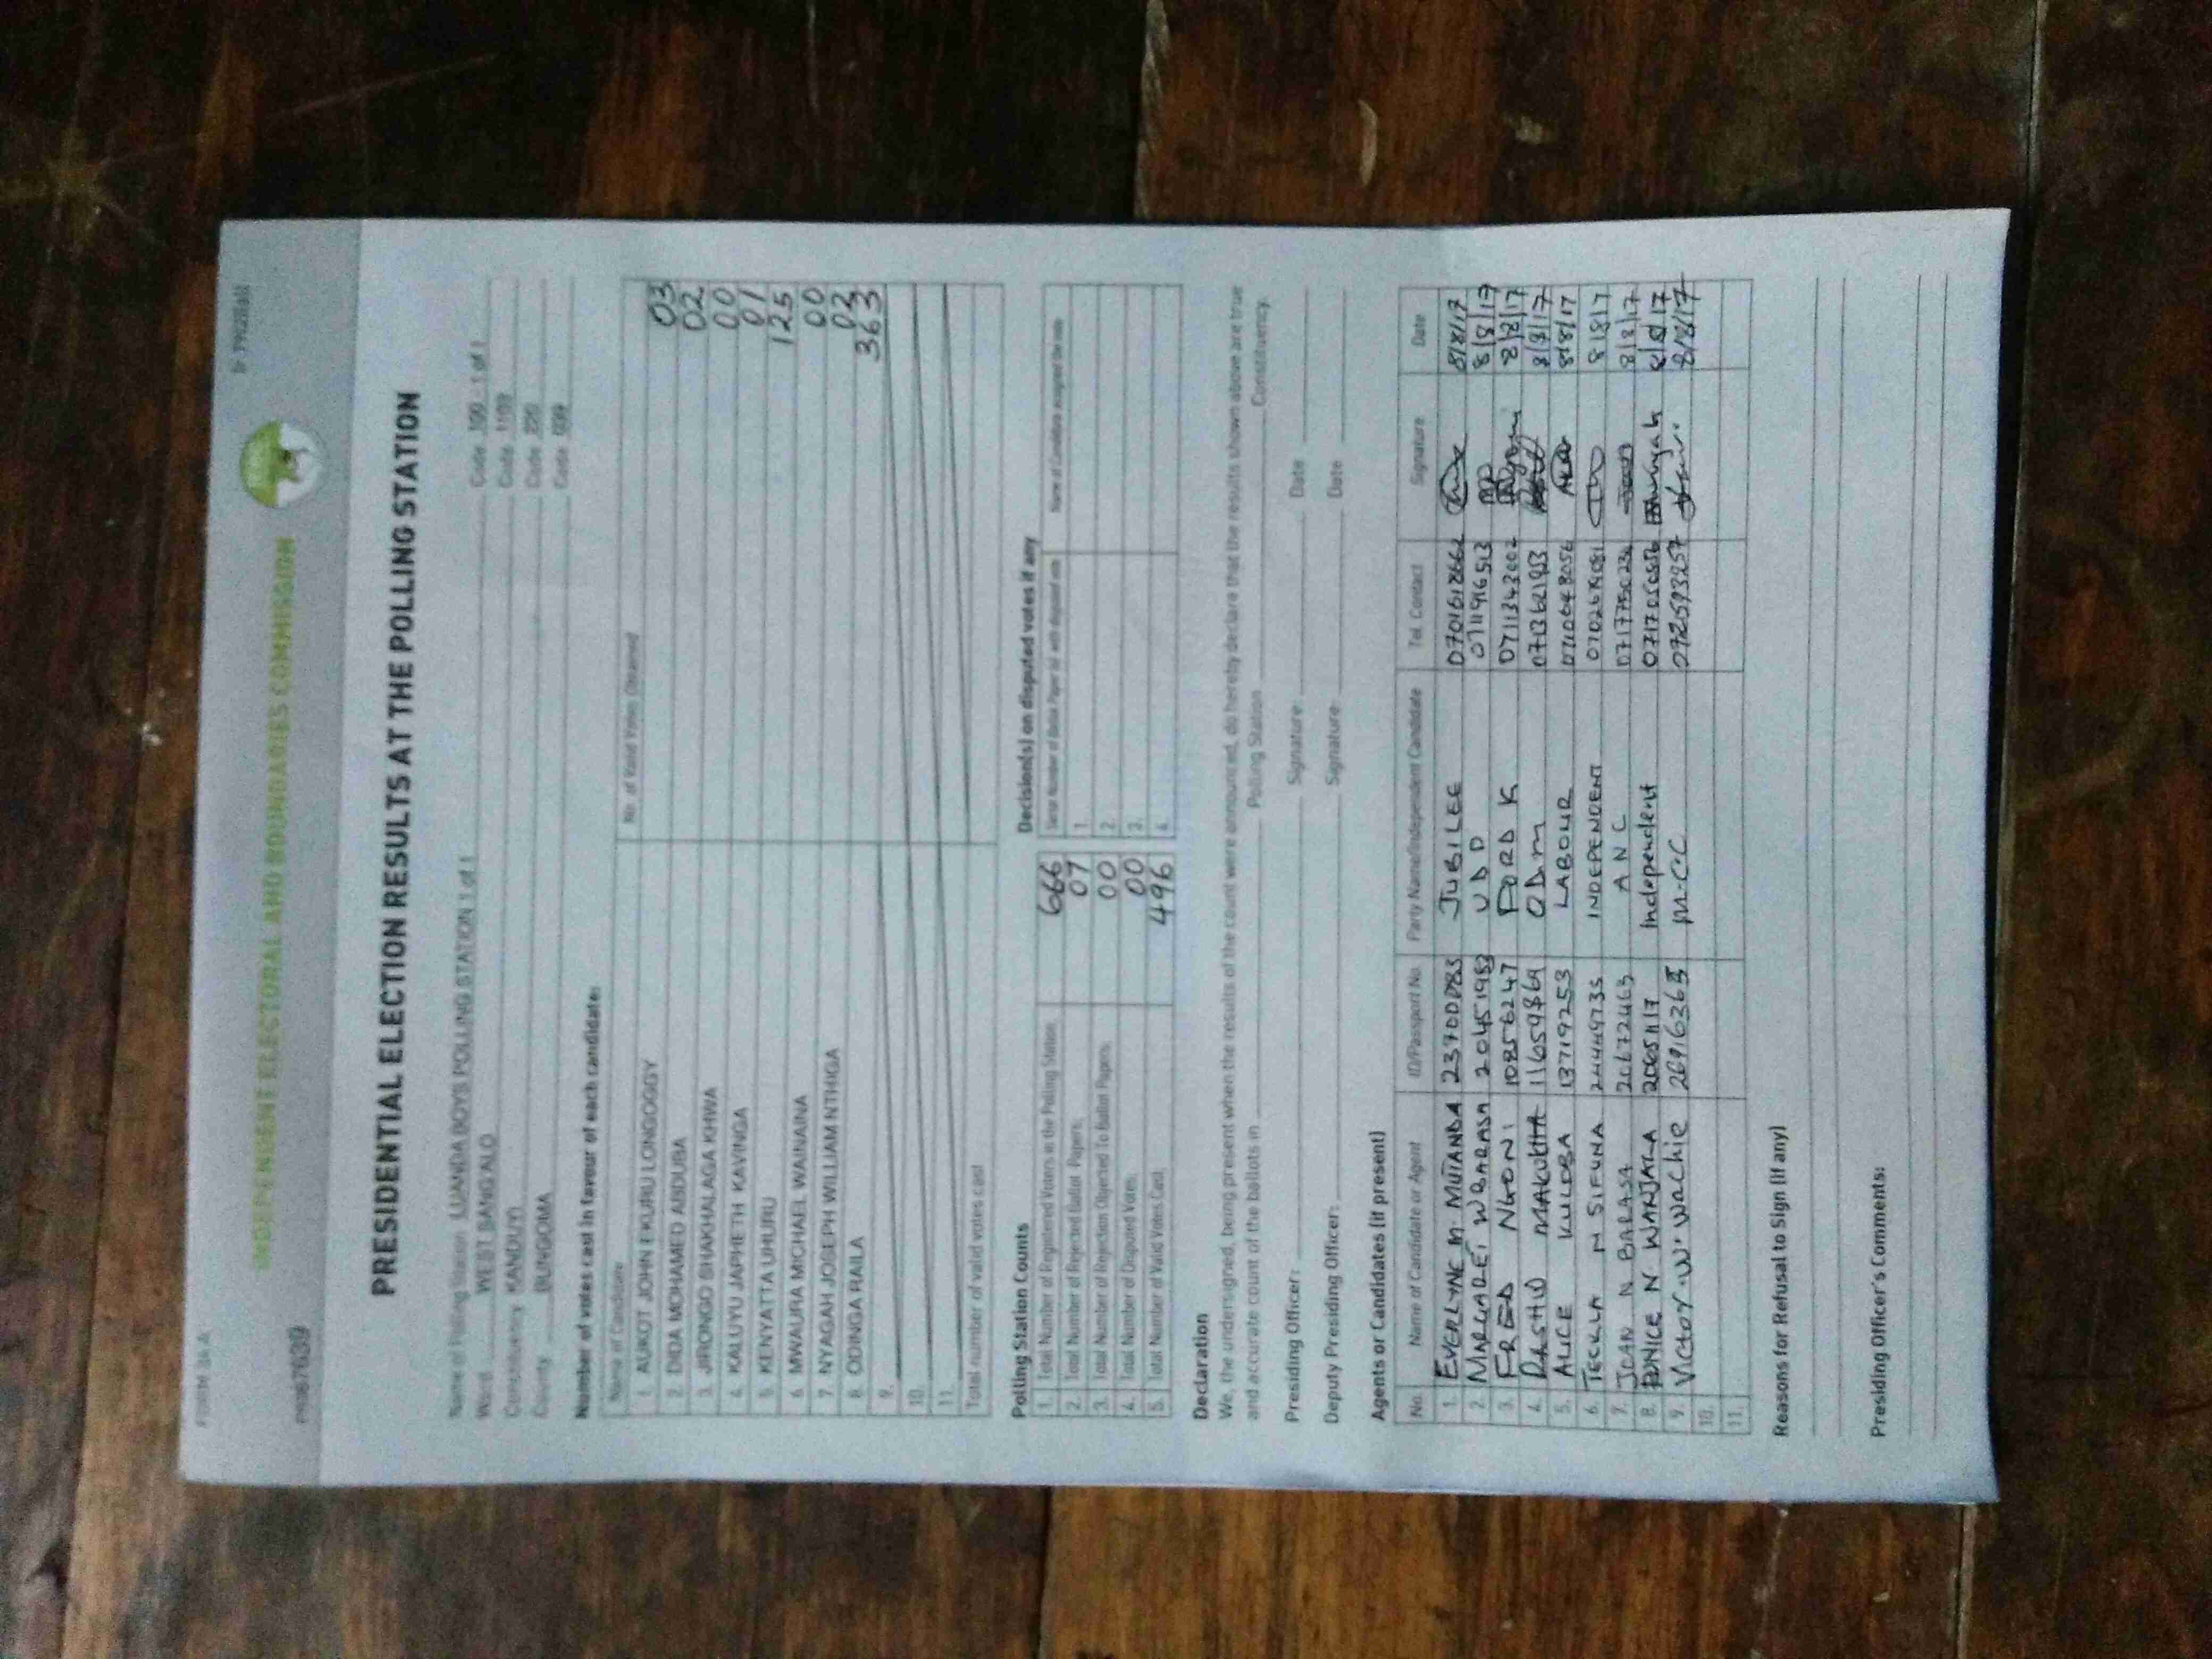 FORM 34 A
INDEPENDENT ELECTORAL AND BOUNDARIES COMMISSION
PRESIDENTIAL ELECTION RESULTS AT THE POLLING STATION
Name of Polling Station LUANDA BOYS POLLING STATION 1 of 1 Code 1 of 1
Ward WEST SANG'ALO Code
Constituency KANDUYI Code 220
County BUNGOMA Code 039
Number of votes cast in favour of each candidate:
Name of Candidate No. of Valid Votes Obtained
1. AUKOT JOHN EKURU LONGOGGY 03
2. DIDA MOHAMED ABDUBA 02
3. JIRONGO SHAKHALAGA KHWA 00
4. KALUYU JAPHETH KAVINGA 01
5. KENYATTA UHURU 125
6. MWAURA MICHAEL WAINAINA 00
7. NYAGAH JOSEPH WILLIAM NTHIGA 02
8. ODINGA RAILA 363
9.
10.
11.
Total number of valid votes cast
Polling Station Counts
1. Total Number of Registered Voters in the Polling Station 666
2. Total Number of Rejected Ballot Papers 07
3. Total Number of Rejection Objected To Ballot Papers 00
4. Total Number of Disputed Votes 00
5. Total Number of Valid Votes Cast 496
Decision(s) on disputed votes if any
1.
2.
3.
4.
Declaration
We, the undersigned, being present when the results of the count were announced, do hereby declare that the results shown above are true
and accurate count of the ballots in Polling Station Constituency.
Presiding Officer: Signature Date
Deputy Presiding Officer: Signature Date
Agents or Candidates (if present)
No. Name of Candidate or Agent ID/Passport No. Party Name/Independent Candidate Tel. Contact Signature Date
1. EVERLYNE M. MUTANDA JUBILEE 0701618662 8/8/17
2. MARGARET W BARASA 20451982 UDD 0711916513 8/8/17
3. FRED NGONI 10856247 FORD K 0711343002 8/8/17
4. RASHID MAKUTHA ODM 0713621953 8/8/17
5. ALICE KULOBA 13719253 LABOUR 0710648056 8/8/17
6. TECKLA N SIFUNA 24449735 INDEPENDENT 8/8/17
7. JOAN N BARASA 20672463 ANC 8/8/17
8. N WANJALA Independent 8/8/17
9. Victor .W. Wachie M.C.C 072593257 8/8/17
10.
11.
Reasons for Refusal to Sign (if any)
Presiding Officer's Comments: